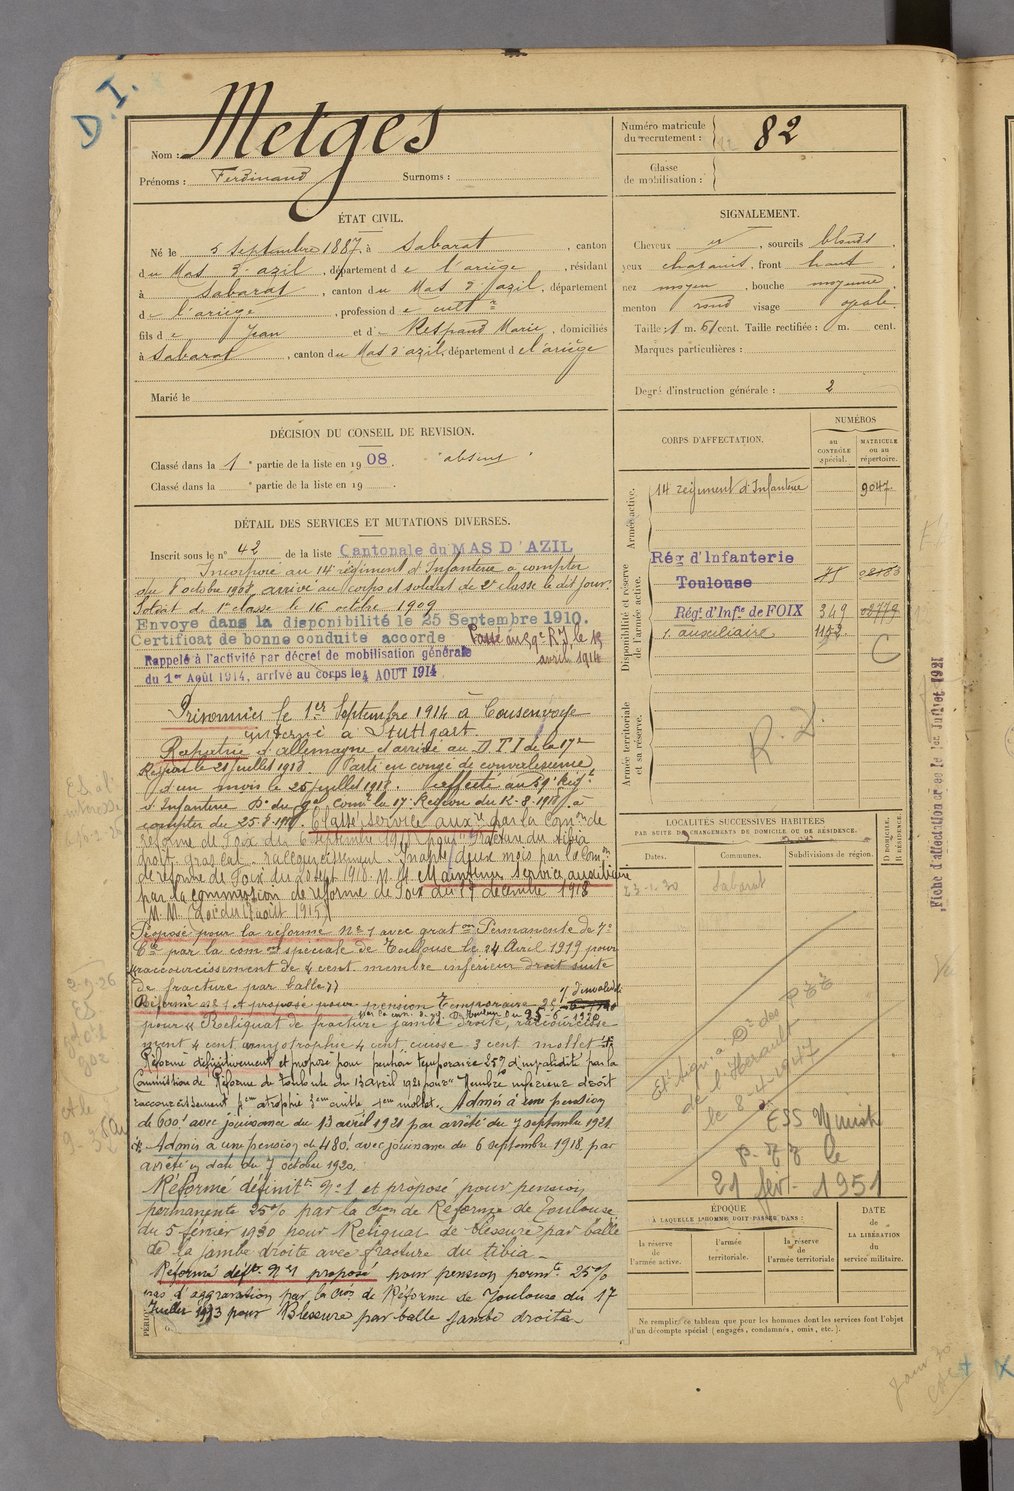 D.I.
Nom : Metges
Prénoms : Ferdinand Surnoms :
Numéro matricule
du recrutement : 82
Classe
de mobilisation :
ÉTAT CIVIL.
Né le 5 Septembre 1887, à Sabarat, canton
du Mas d'azil, département de l'ariège, résidant
à Sabarat, canton du Mas d'azil, département
de l'ariège, profession de cultr
fils de Jean et de Respaud Marie, domiciliés
à Sabarat, canton du Mas d'azil, département de l'ariège
Marié le
SIGNALEMENT.
Cheveux et, sourcils blonds,
yeux chatains, front haut,
nez moyen, bouche moyenne,
menton rond visage ovale.
Taille : 1 m. 61 cent. Taille rectifiée : m. cent.
Marques particulières :
Degré d'instruction générale : 2
DÉCISION DU CONSEIL DE REVISION.
Classé dans la 1e partie de la liste en 1908. "absent"
Classé dans la e partie de la liste en 19 .
DÉTAIL DES SERVICES ET MUTATIONS DIVERSES.
Inscrit sous le n° 42 de la liste Cantonale du MAS D'AZIL
Incorporé au 14 régiment d'Infanterie à compter
du 8 octobre 1908, arrivé au corps et soldat de 2e classe le dit jour.
Soldat de 1e classe le 16 octobre 1909
Envoyé dans la disponibilité le 25 Septembre 1910.
Certificat de bonne conduite accordé
Passé au 59e R.I. le 15
avril 1914
Rappelé à l'activité par décret de mobilisation générale
du 1er Août 1914, arrivé au corps le 4 AOUT 1914
Prisonnier le 1er Septembre 1914 à Consenvoye
interné à Stuttgart.
Rapatrié d'allemagne et arrivé au D.T.I de la 17e
Région le 21 juillet 1918. Parti en congé de convalescence
d'un mois le 25 juillet 1918. affecté au 59e Régt
d'Infanterie Don du Gal Comt la 17e Région du 12-8-1918 à
compter du 25-8-1918. Classé service auxre par la Comon de
réforme de Foix du 6 septembre 1918 pour fracture du tibia
droit, gros cal raccourcissement. Inapte deux mois par la Comon
de réforme de Foix du 20 sept 1918. Maintenu Service auxiliaire
par la commission de réforme de Foix du 17 décembre 1918
M.M. Loi du 17 août 1915.
Proposé pour la réforme n° 1 avec graton Permanente de 7e
Cie par la comon spéciale de Toulouse le 24 Avril 1919 pour
"raccourcissement de 4 cent. membre inférieur droit suite
de fracture par balle"
Réformé n° 1 et proposé pour pension temporaire 25 % d'invalidité
pour "Reliquat de fracture jambe droite, raccourcisse
ment 4 cent amyotrophie 4 cent cuisse 3 cent mollet
Réformé définitivement et proposé pour pension temporaire 25% d'invalidité par la
Commission de Réforme de Toulouse du 13 avril 1921 pour "Membre inférieur droit
raccourcissement 4cm atrophie 3cm cuisse 1cm mollet. Admis à une pension
de 600f avec jouissance du 13 avril 1921 par arrêté du 7 septembre 1921.
Admis à une pension de 480f avec jouissance du 6 septembre 1918 par
arrêté en date du 7 octobre 1920.
Réformé définitt n° 1 et proposé pour pension
permanente 25% par la Cion de Réforme de Toulouse
du 5 février 1930 pour Reliquat de blessure par balle
de la jambe droite avec fracture du tibia.
Réformé déft n° 1 proposé pour pension permte 25%
pas d'aggravation par la Cion de Réforme de Toulouse du 17
Juillet 1933 pour Blessure par balle jambe droite
PÉRIO
CORPS D'AFFECTATION.
NUMÉROS
au
CONTRÔLE
spécial.
MATRICULE
ou au
répertoire.
Armée active.
14 régiment d'Infanterie 9047
Disponibilité et réserve
de l'armée active.
Rég d'Infanterie
Toulouse
Régt d'Infie de FOIX 349
s. auxiliaire 1152
Armée territoriale
et sa réserve.
R.D.
Fiche d'affectation créée le 1er Juillet 1921
LOCALITÉS SUCCESSIVES HABITÉES
PAR SUITE DE CHANGEMENTS DE DOMICILE OU DE RÉSIDENCE.
Dates. Communes. Subdivisions de région. D DOMICILE. R RÉSIDENCE.
23-1-30 Sabarat
de l'Hérault
le 8-4-1947
ESS Minist
P. ZZ le
21 fév. 1951
ÉPOQUE
À LAQUELLE L'HOMME DOIT PASSER DANS :
la réserve
de
l'armée active.
l'armée
territoriale.
la réserve
de
l'armée territoriale
DATE
de
LA LIBÉRATION
du
service militaire.
Ne remplir ce tableau que pour les hommes dont les services font l'objet
d'un décompte spécial (engagés, condamnés, omis, etc.).